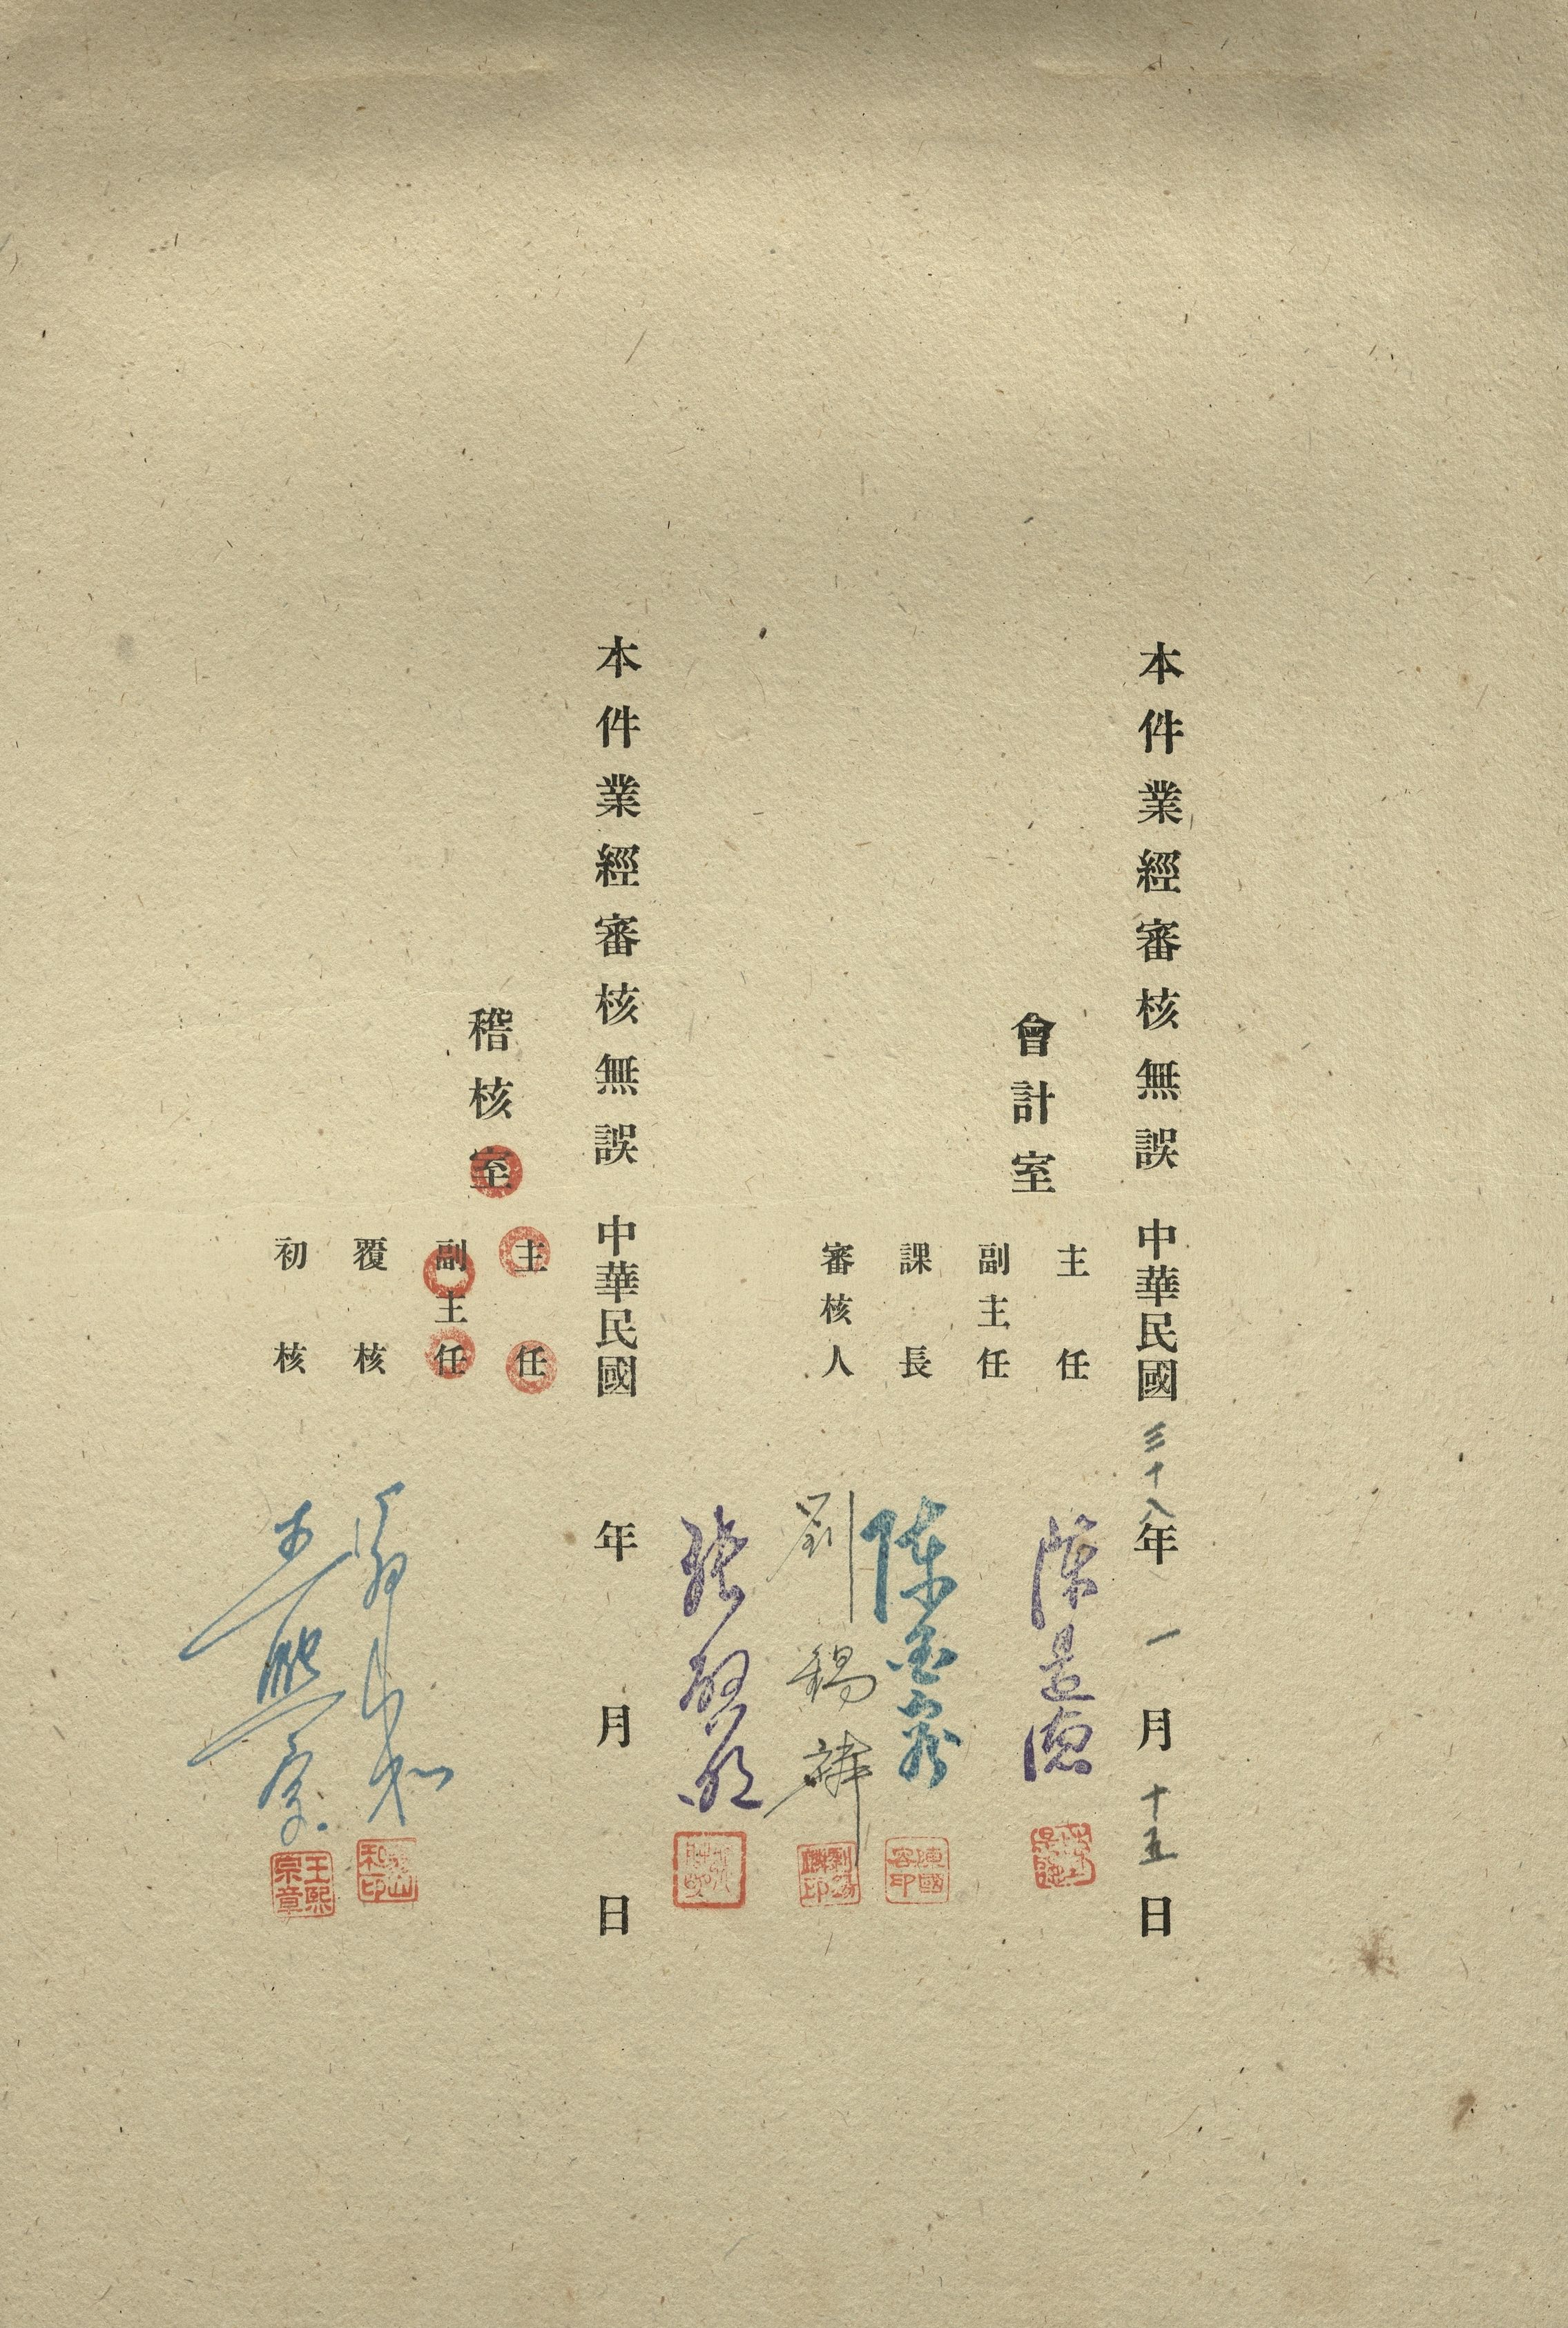 本件業經審核無誤 中華民國三十八年一月十五日
會計室
主任 陳是德
副主任
課長 陳國容
審核人 劉錫
本件業經審核無誤 中華民國 年 月 日
稽核室
主任
副主任
覆核
初核 王熙宗
陳國容印
王熙宗章